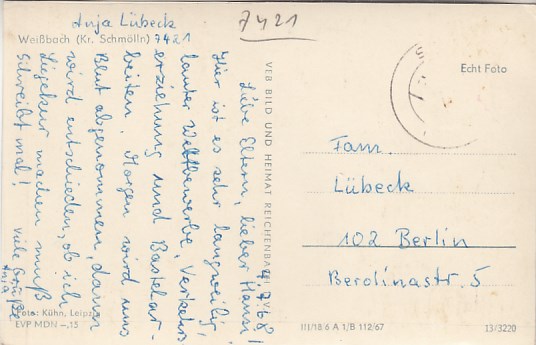 Anja Lübeck
Weißbach (Kr. Schmölln) 7421
7421
4. 7. 68
Liebe Eltern, lieber Hansi!
Hier ist es sehr langweilig,
lauter Wettbewerbe, Verkehrs
erziehung und Bastelar-
beiten. Morgen wird uns
Blut abgenommen, dann
wird entschieden, ob ich
Liegekur machen muß
Schreibt mal!
viele Grüße
Anja
Foto: Kühn, Leipzig
EVP MDN -.15
VEB BILD UND HEIMAT REICHENBACH
Echt Foto
Fam.
Lübeck
102 Berlin
Berolinastr. 5
III/18/6 A 1/B 112/67
13/3220